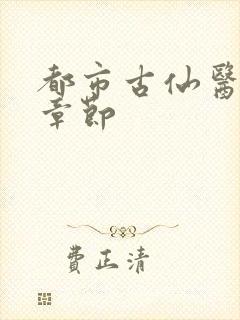 都市古仙醫
章節
費正清